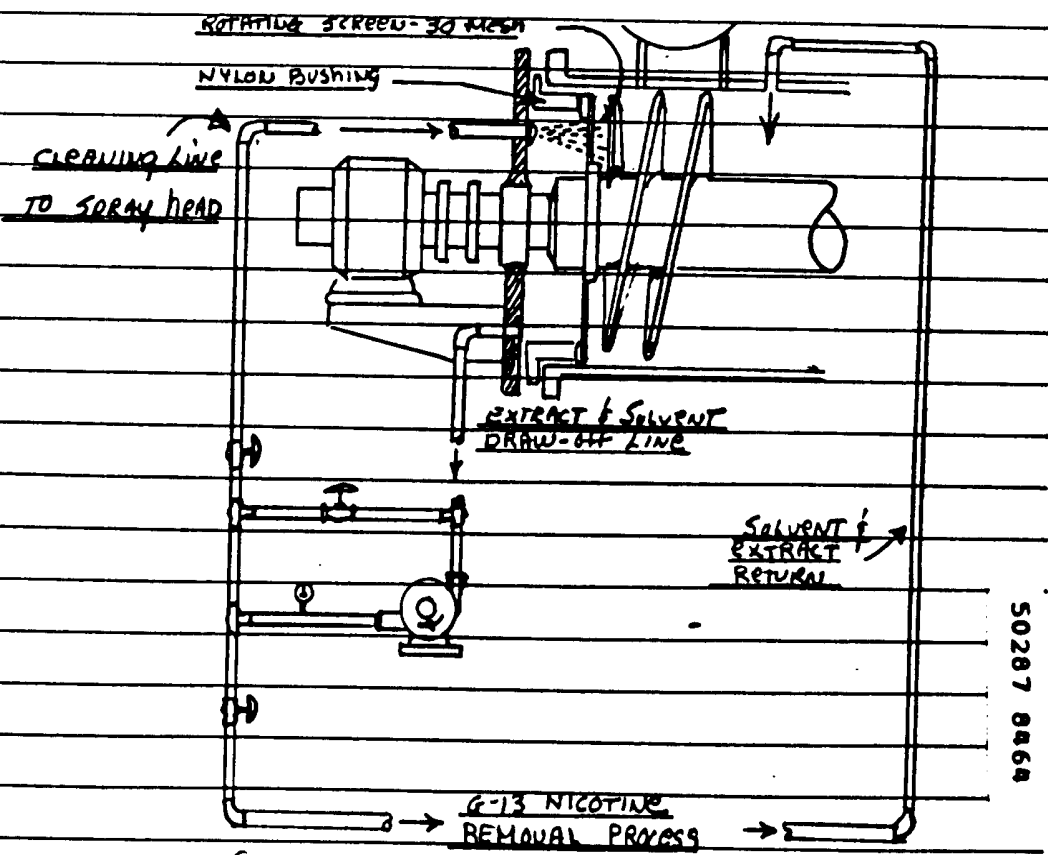 ROTATING SCREEN-30 MESH
NYLON BUSHING
CLEANING LINE
TO SPRAY HEAD
EXTRACT & SOLVENT
DRAW-OFF LINE
SOLVENT &
EXTRACT
RETURN
G-13 NICOTINE
REMOVAL PROCESS
50287 8464